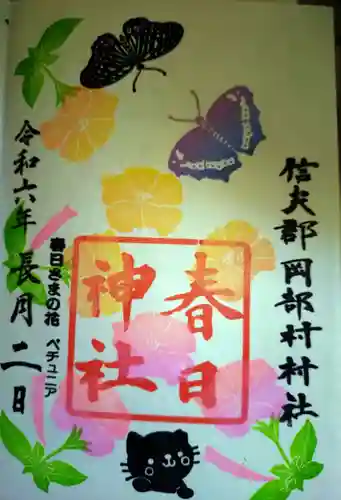 信夫郡岡部村村社
春日
神社
春日さまの花 ペチュニア
令和六年長月二日